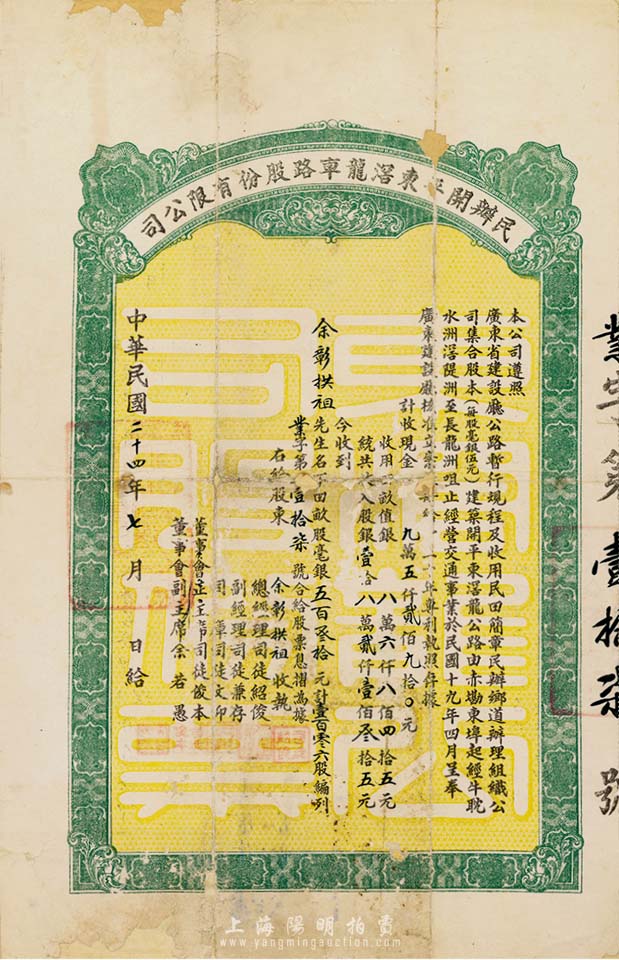 民辦開平東滘龍車路股份有限公司
本公司遵照
廣東省建設廳公路暫行規程及收用民田簡章民辦鄉道辦理組織公
司集合股本(每股毫銀伍元)建築開平東滘龍公路由赤墈東埠起經牛貺
水洲滘隄洲至長龍洲咀止經營交通事業於民國十九年四月呈奉
廣東建設廳核准立案 十年專利執照存據
計收現金 九萬五仟貳佰九拾〇元
收用 畝值銀 八萬六仟八佰四拾五元
統共 入股銀壹拾八萬貳仟壹佰叁拾五元
今收到
余彰拱祖先生名下田畝股毫銀五百叁拾 元計壹百零六股編列
業字第壹拾柒號合給股票息摺為據
右給股東 余彰拱祖 收執
總經理司徒紹俊
副經理司徒兼存
司庫司徒文印
董事會正主席司徒俊本
董事會副主席余若愚
中華民國二十四年七月 日給
業字第壹拾柒號
上海陽明拍賣
www.yangmingauction.com